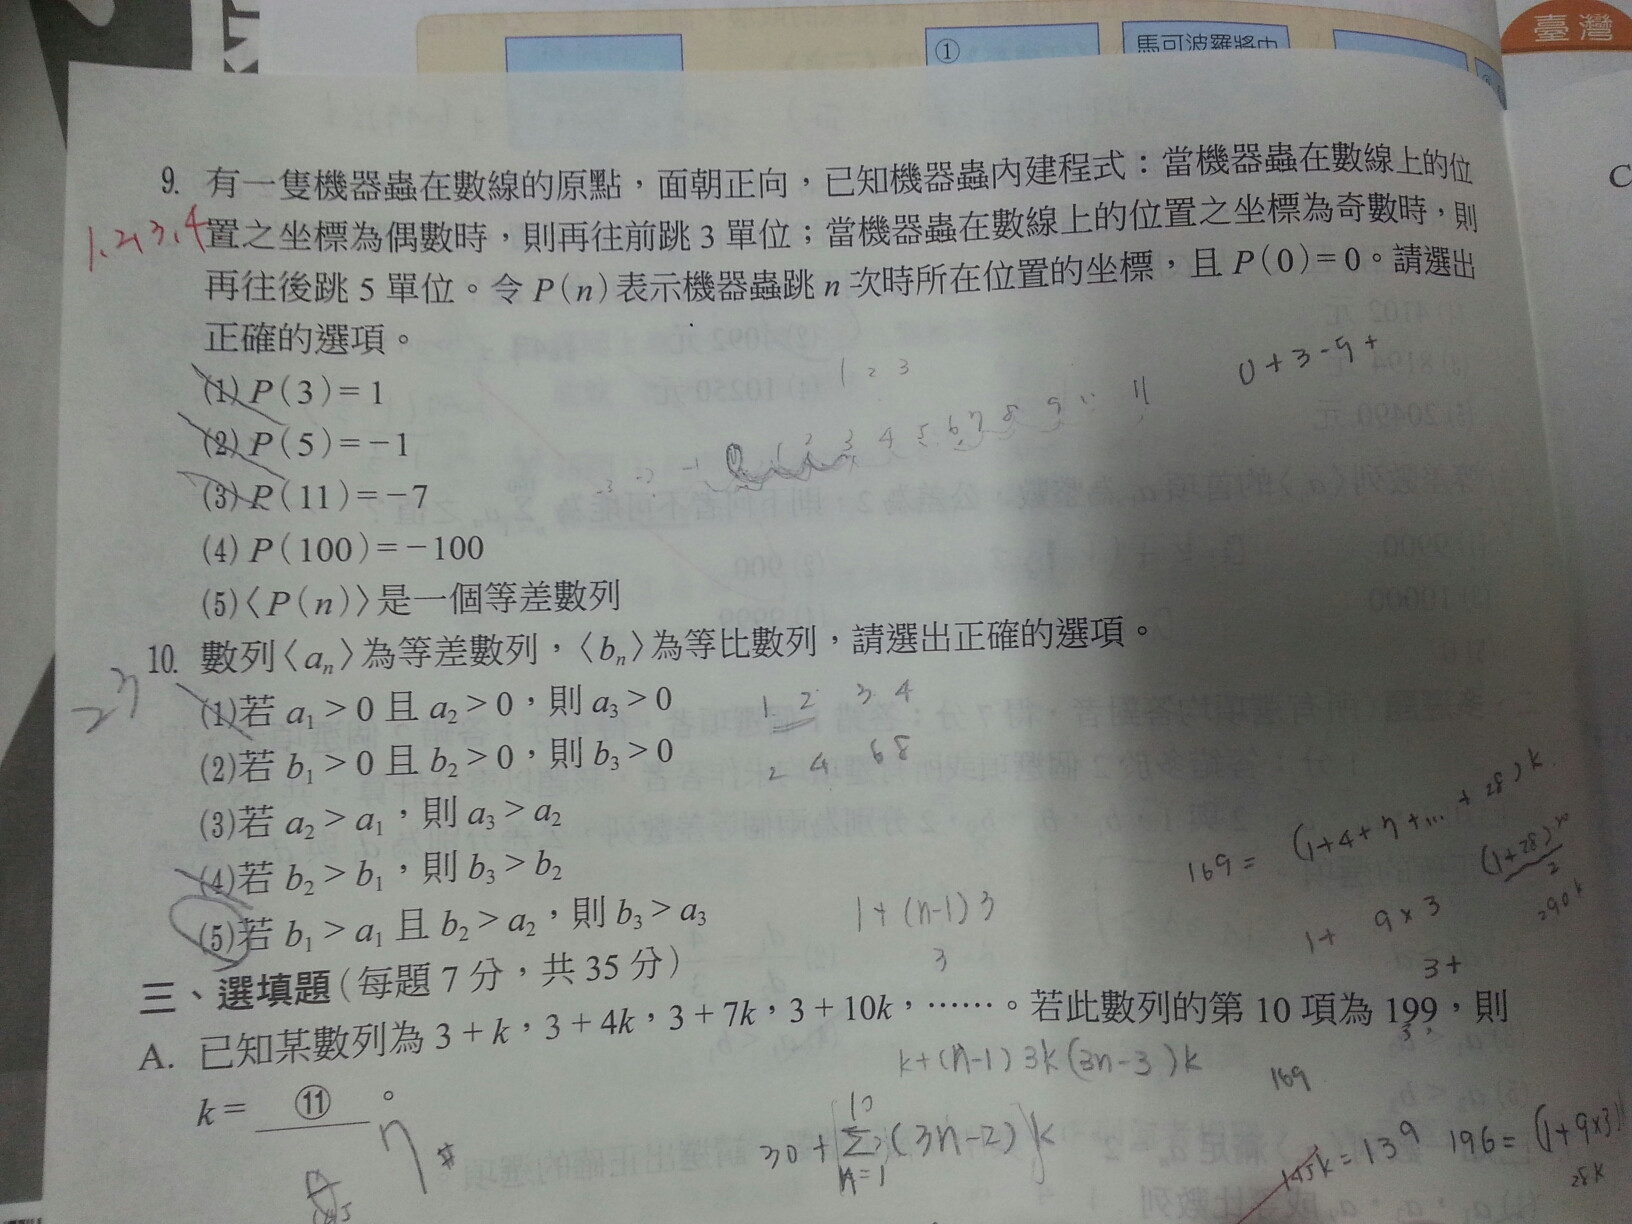 臺灣
①
馬可波羅將中
9. 有一隻機器蟲在數線的原點，面朝正向，已知機器蟲內建程式：當機器蟲在數線上的位
1,2,3,4
置之坐標為偶數時，則再往前跳 3 單位；當機器蟲在數線上的位置之坐標為奇數時，則
再往後跳 5 單位。令 P(n) 表示機器蟲跳 n 次時所在位置的坐標，且 P(0)=0。請選出
正確的選項。
0+3-9+
(1) P(3)=1
1 2 3
(2) P(5)=-1
(3) P(11)=-7
(4) P(100)=-100
(5)〈P(n)〉是一個等差數列
10. 數列〈aₙ〉為等差數列，〈bₙ〉為等比數列，請選出正確的選項。
23
(1)若 a₁>0 且 a₂>0，則 a₃>0
1 2 3 4
(2)若 b₁>0 且 b₂>0，則 b₃>0
2 4 6 8
(3)若 a₂>a₁，則 a₃>a₂
169= (1+4+7+...+28)k
(4)若 b₂>b₁，則 b₃>b₂
(1+28)10
2
290k
(5)若 b₁>a₁ 且 b₂>a₂，則 b₃>a₃
1+(n-1)3
1+ 9×3
3
3+
三、選填題(每題 7 分，共 35 分)
A. 已知某數列為 3+k，3+4k，3+7k，3+10k，……。若此數列的第 10 項為 199，則
k+(n-1)3k(3n-3)k
169
k= ⑪ 。
7#
30+[Σ(3n-2)]k
10
n=1
145k=139
196=(1+9×3)
28k